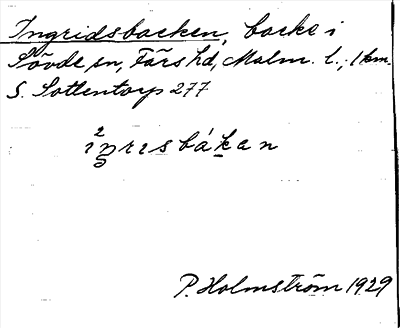 Ingridsbacken, backe i
Sövde sn, Färs hd, Malm. l., 1 km.
S. Sottentorp 277
2
iŋrɪsbákan
P. Holmström 1929